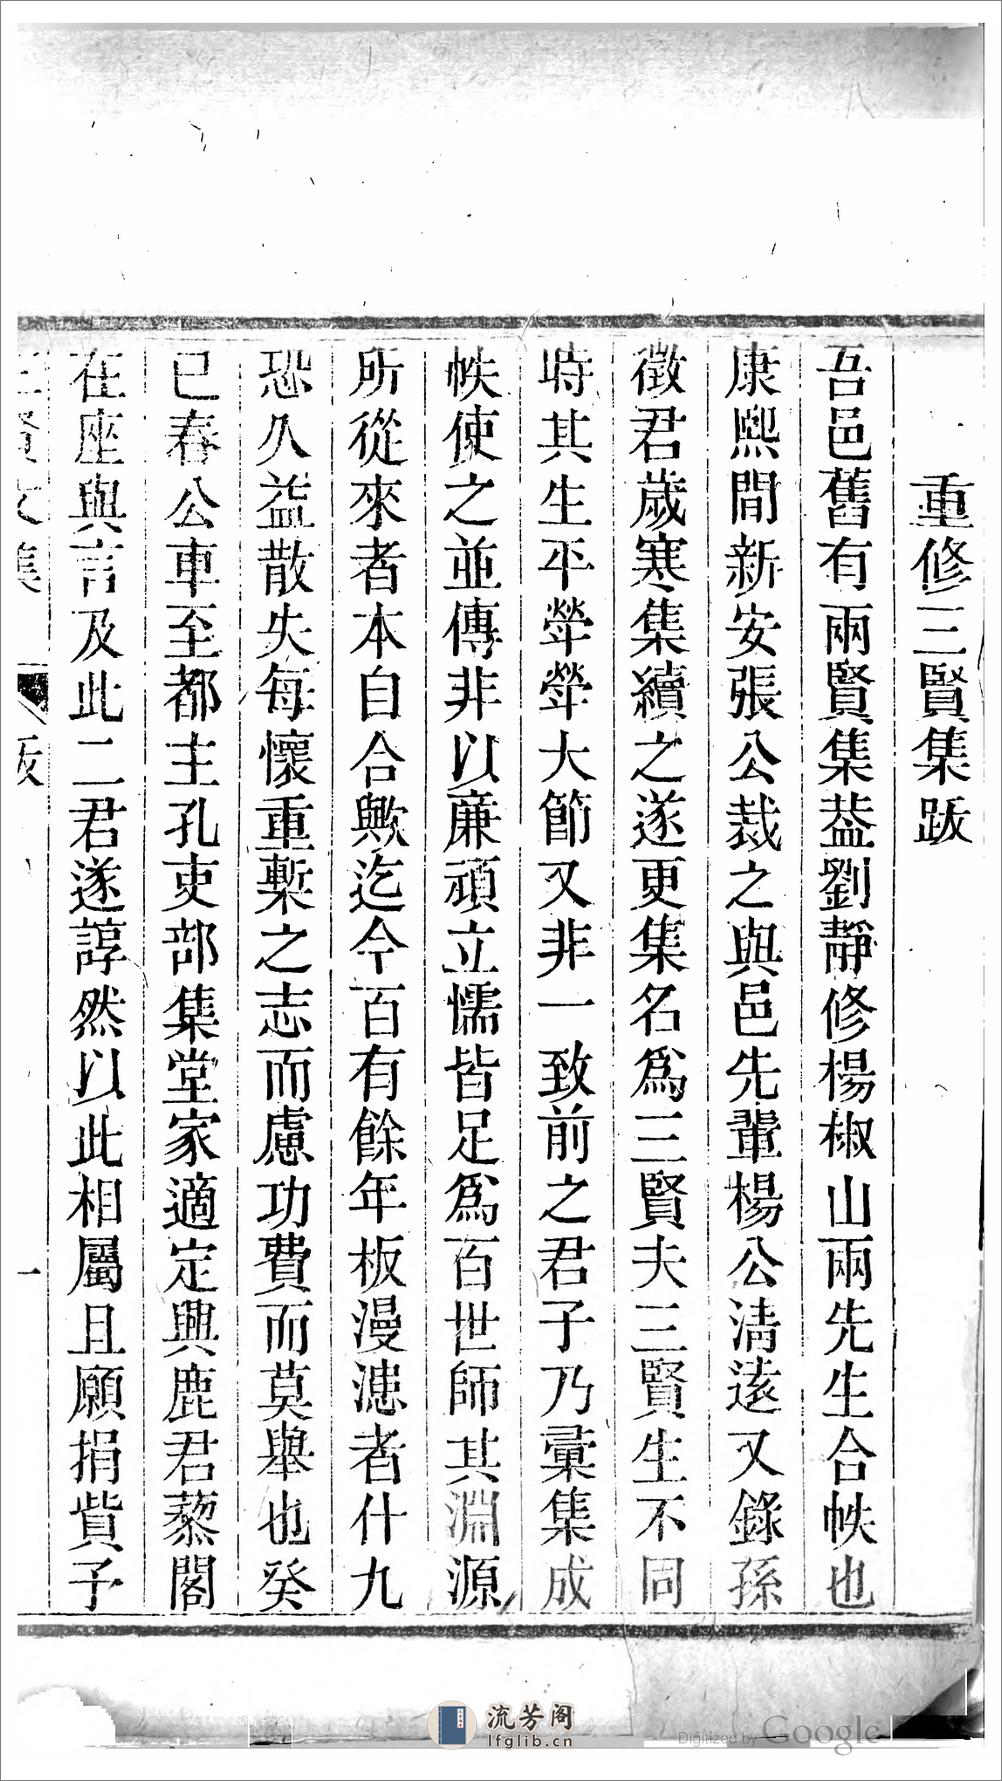 重修三賢集跋
吾邑舊有兩賢集葢劉靜修楊椒山兩先生合帙也
康熙間新安張公裁之與邑先輩楊公清遠又錄孫
徵君歲寒集續之遂更集名爲三賢夫三賢生不同
時其生平犖犖大節又非一致前之君子乃彙集成
帙使之並傳非以廉頑立懦皆足爲百世師其淵源
所從來者本自合歟迄今百有餘年板漫漶者什九
恐久益散失每懷重槧之志而慮功費而莫舉也癸
巳春公車至都主孔吏部集堂家適定興鹿君藜閣
在座與言及此二君遂諄然以此相屬且願捐貲予
三賢文集
跋
一
流芳阁
lfglib.cn
Digitized by Google